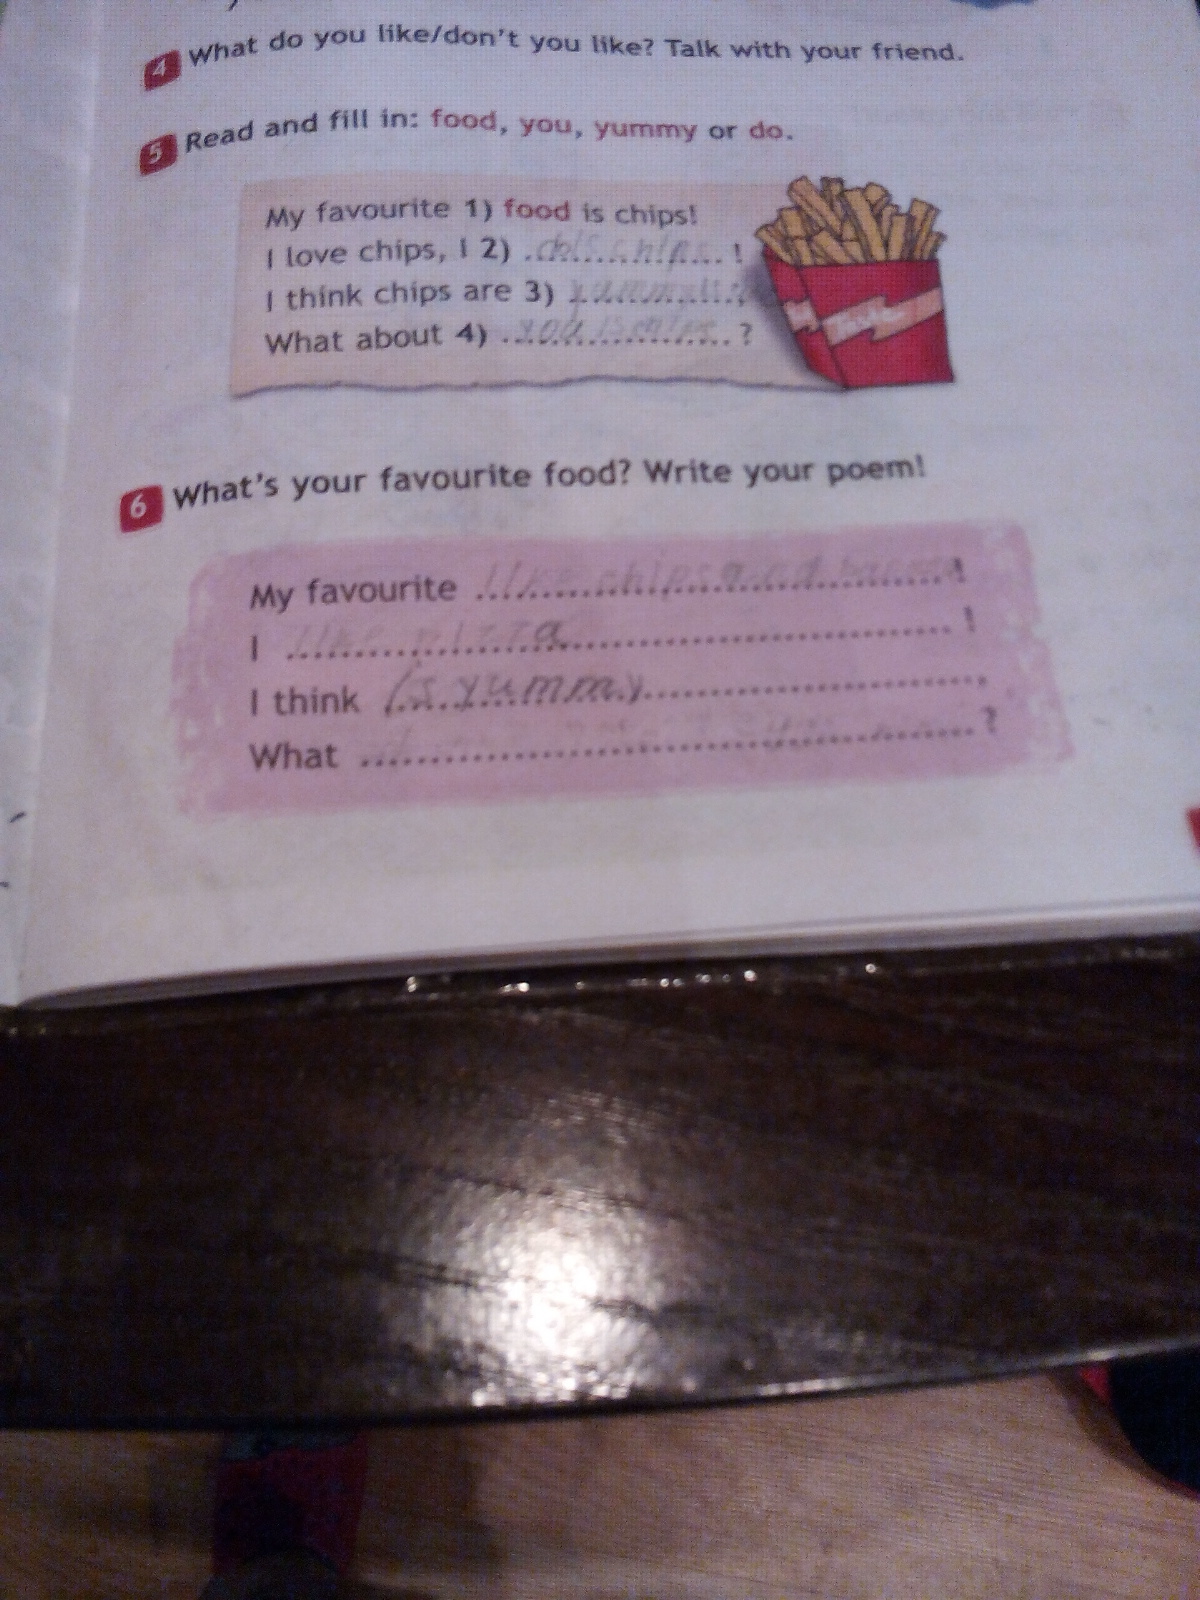 4 What do you like/don't you like? Talk with your friend.
5 Read and fill in: food, you, yummy or do.
My favourite 1) food is chips!
I love chips, I 2) ..................... !
I think chips are 3) .....................
What about 4) you is chips ?
6 What's your favourite food? Write your poem!
My favourite like chips and !
I like pizza !
I think is yummy ,
What ..................... ?